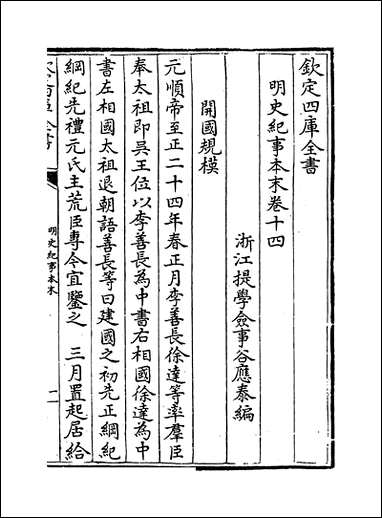 欽定四庫全書
明史紀事本末卷十四
浙江提學僉事谷應泰編
開國規模
元順帝至正二十四年春正月李善長徐達等率羣臣
奉太祖即吳王位以李善長為中書右相國徐達為中
書左相國太祖退朝語善長等曰建國之初先正綱紀
綱紀先禮元氏主荒臣專今宜鑒之 三月置起居給
明史紀事本末
一